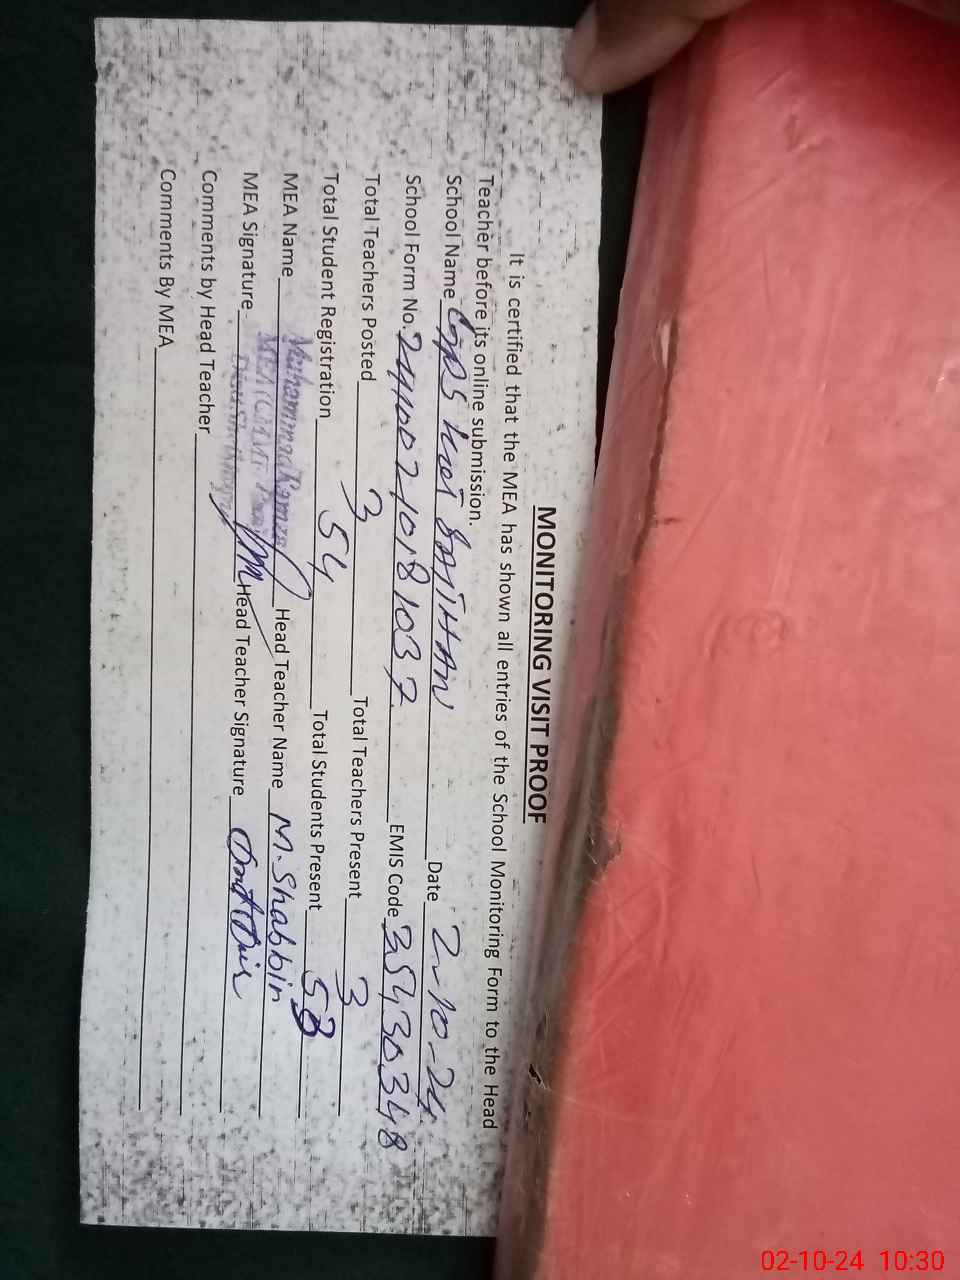 MONITORING VISIT PROOF
It is certified that the MEA has shown all entries of the School Monitoring Form to the Head
Teacher before its online submission.
School Name GPS Kot Date 2-10-24
School Form No. 24100210181037 EMIS Code 35430348
Total Teachers Posted 3 Total Teachers Present 3
Total Student Registration 54 Total Students Present 53
MEA Name Muhammad Head Teacher Name M. Shabbir
MEA Signature Head Teacher Signature
Comments by Head Teacher
Comments By MEA
02-10-24 10:30